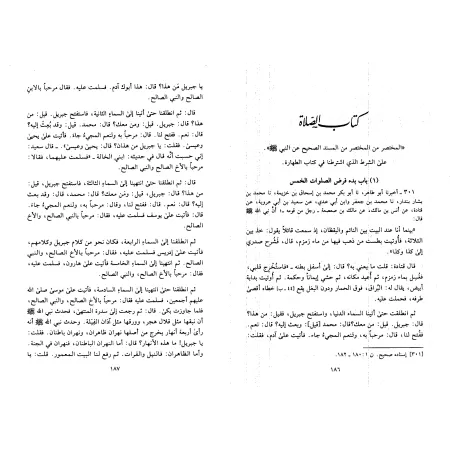 كتاب الصلاة
«المختصر من المختصر من المسند الصحيح عن النبي ﷺ».
على الشرط الذي اشترطنا في كتاب الطهارة.
(١) باب بدء فرض الصلوات الخمس
٣٠١ - أخبرنا أبو طاهر، نا أبو بكر محمد بن إسحاق بن خزيمة، نا محمد بن
بشار بندار، نا محمد بن جعفر وابن أبي عدي، عن سعيد بن أبي عروبة، عن
قتادة، عن أنس بن مالك، عن مالك بن صعصعة رجل من قومه: أن نبي الله ﷺ قال:
«بينما أنا عند البيت بين النائم واليقظان، إذ سمعت قائلاً يقول: خذ بين
الثلاثة، فأوتيت بطست من ذهب فيها من ماء زمزم، قال، فشرح صدري
إلى كذا وكذا».
قال قتادة: قلت ما يعني به؟ قال: إلى أسفل بطنه. «فاستخرج قلبي،
فغسل بماء زمزم، ثم أعيد مكانه، ثم حشي إيماناً وحكمة. ثم أوتيت بدابة
أبيض، يقال له: البراق، فوق الحمار ودون البغل يقع خطاه أقصى
طرفه، فحملت عليه.
ثم انطلقنا حتى أتينا السماء الدنيا، واستفتح جبريل، فقيل: من هذا؟
قال: جبريل. قيل: من معك؟ قال: محمد [قيل]: وبعث إليه؟ قال: نعم.
ففتح لنا. قال: مرحباً به، ولنعم المجيء جاء. فأتيت على آدم، فقلت:
[٣٠١] إسناده صحيح. ن ١: ١٨٠ - ١٨٢.
١٨٦
يا جبريل من هذا؟ قال: هذا أبوك آدم. فسلمت عليه. فقال مرحباً بالابن
الصالح والنبي الصالح.
قال: ثم انطلقنا حتى أتينا إلى السماء الثانية، فاستفتح جبريل. قيل: من
هذا؟ قال: جبريل. قيل: ومن معك؟ قال: محمد، قيل: وقد بعث إليه؟
قال: نعم. ففتح لنا. قال: مرحباً به ولنعم المجيء جاء. فأتيت على يحيى
وعيسى. فقلت: يا جبريل من هذان؟ قال: يحيى وعيسى. - قال سعيد:
إني حسبت أنه قال في حديثه: ابني الخالة - فسلمت عليهما، فقالا:
مرحباً بالأخ الصالح، والنبي الصالح.
قال: ثم انطلقنا حتى انتهينا إلى السماء الثالثة، فاستفتح جبريل، قيل:
من هذا؟ قال: جبريل. قيل: ومن معك؟ قال: محمد. قيل: وقد بعث
إليه؟ قال: نعم. قال: ففتح لنا، وقال: مرحباً به ولنعم المجيء جاء.
قال: فأتيت على يوسف فسلمت عليه، فقال: مرحباً بالنبي الصالح، والأخ
الصالح.
ثم انطلقنا إلى السماء الرابعة، فكان نحو من كلام جبريل وكلامهم.
فأتيت على إدريس فسلمت عليه، فقال: مرحباً بالأخ الصالح، والنبي الصالح.
ثم انتهينا إلى السماء الخامسة فأتيت على هارون، فسلمت عليه.
فقال: مرحباً بالأخ الصالح، والنبي الصالح.
ثم انطلقنا إلى السماء السادسة، فأتيت على موسى صلى الله
عليهم أجمعين، فسلمت عليه فقال: مرحباً بالأخ الصالح، والنبي الصالح،
فلما جاوزت بكى. قال: ثم رجعت إلى سدرة المنتهى، فحدث نبي الله ﷺ
أن نبقها مثل قلال هجر، وورقها مثل آذان الفيلة. وحدث نبي الله ﷺ أنه
رأى أربعة أنهار يخرج من أصلها نهران ظاهران، ونهران باطنان. فقلت:
يا جبريل! ما هذه الأنهار؟ قال: أما النهران الباطنان، فنهران في الجنة،
وأما الظاهران: فالنيل والفرات. ثم رفع لنا البيت المعمور. قلت: يا
١٨٧